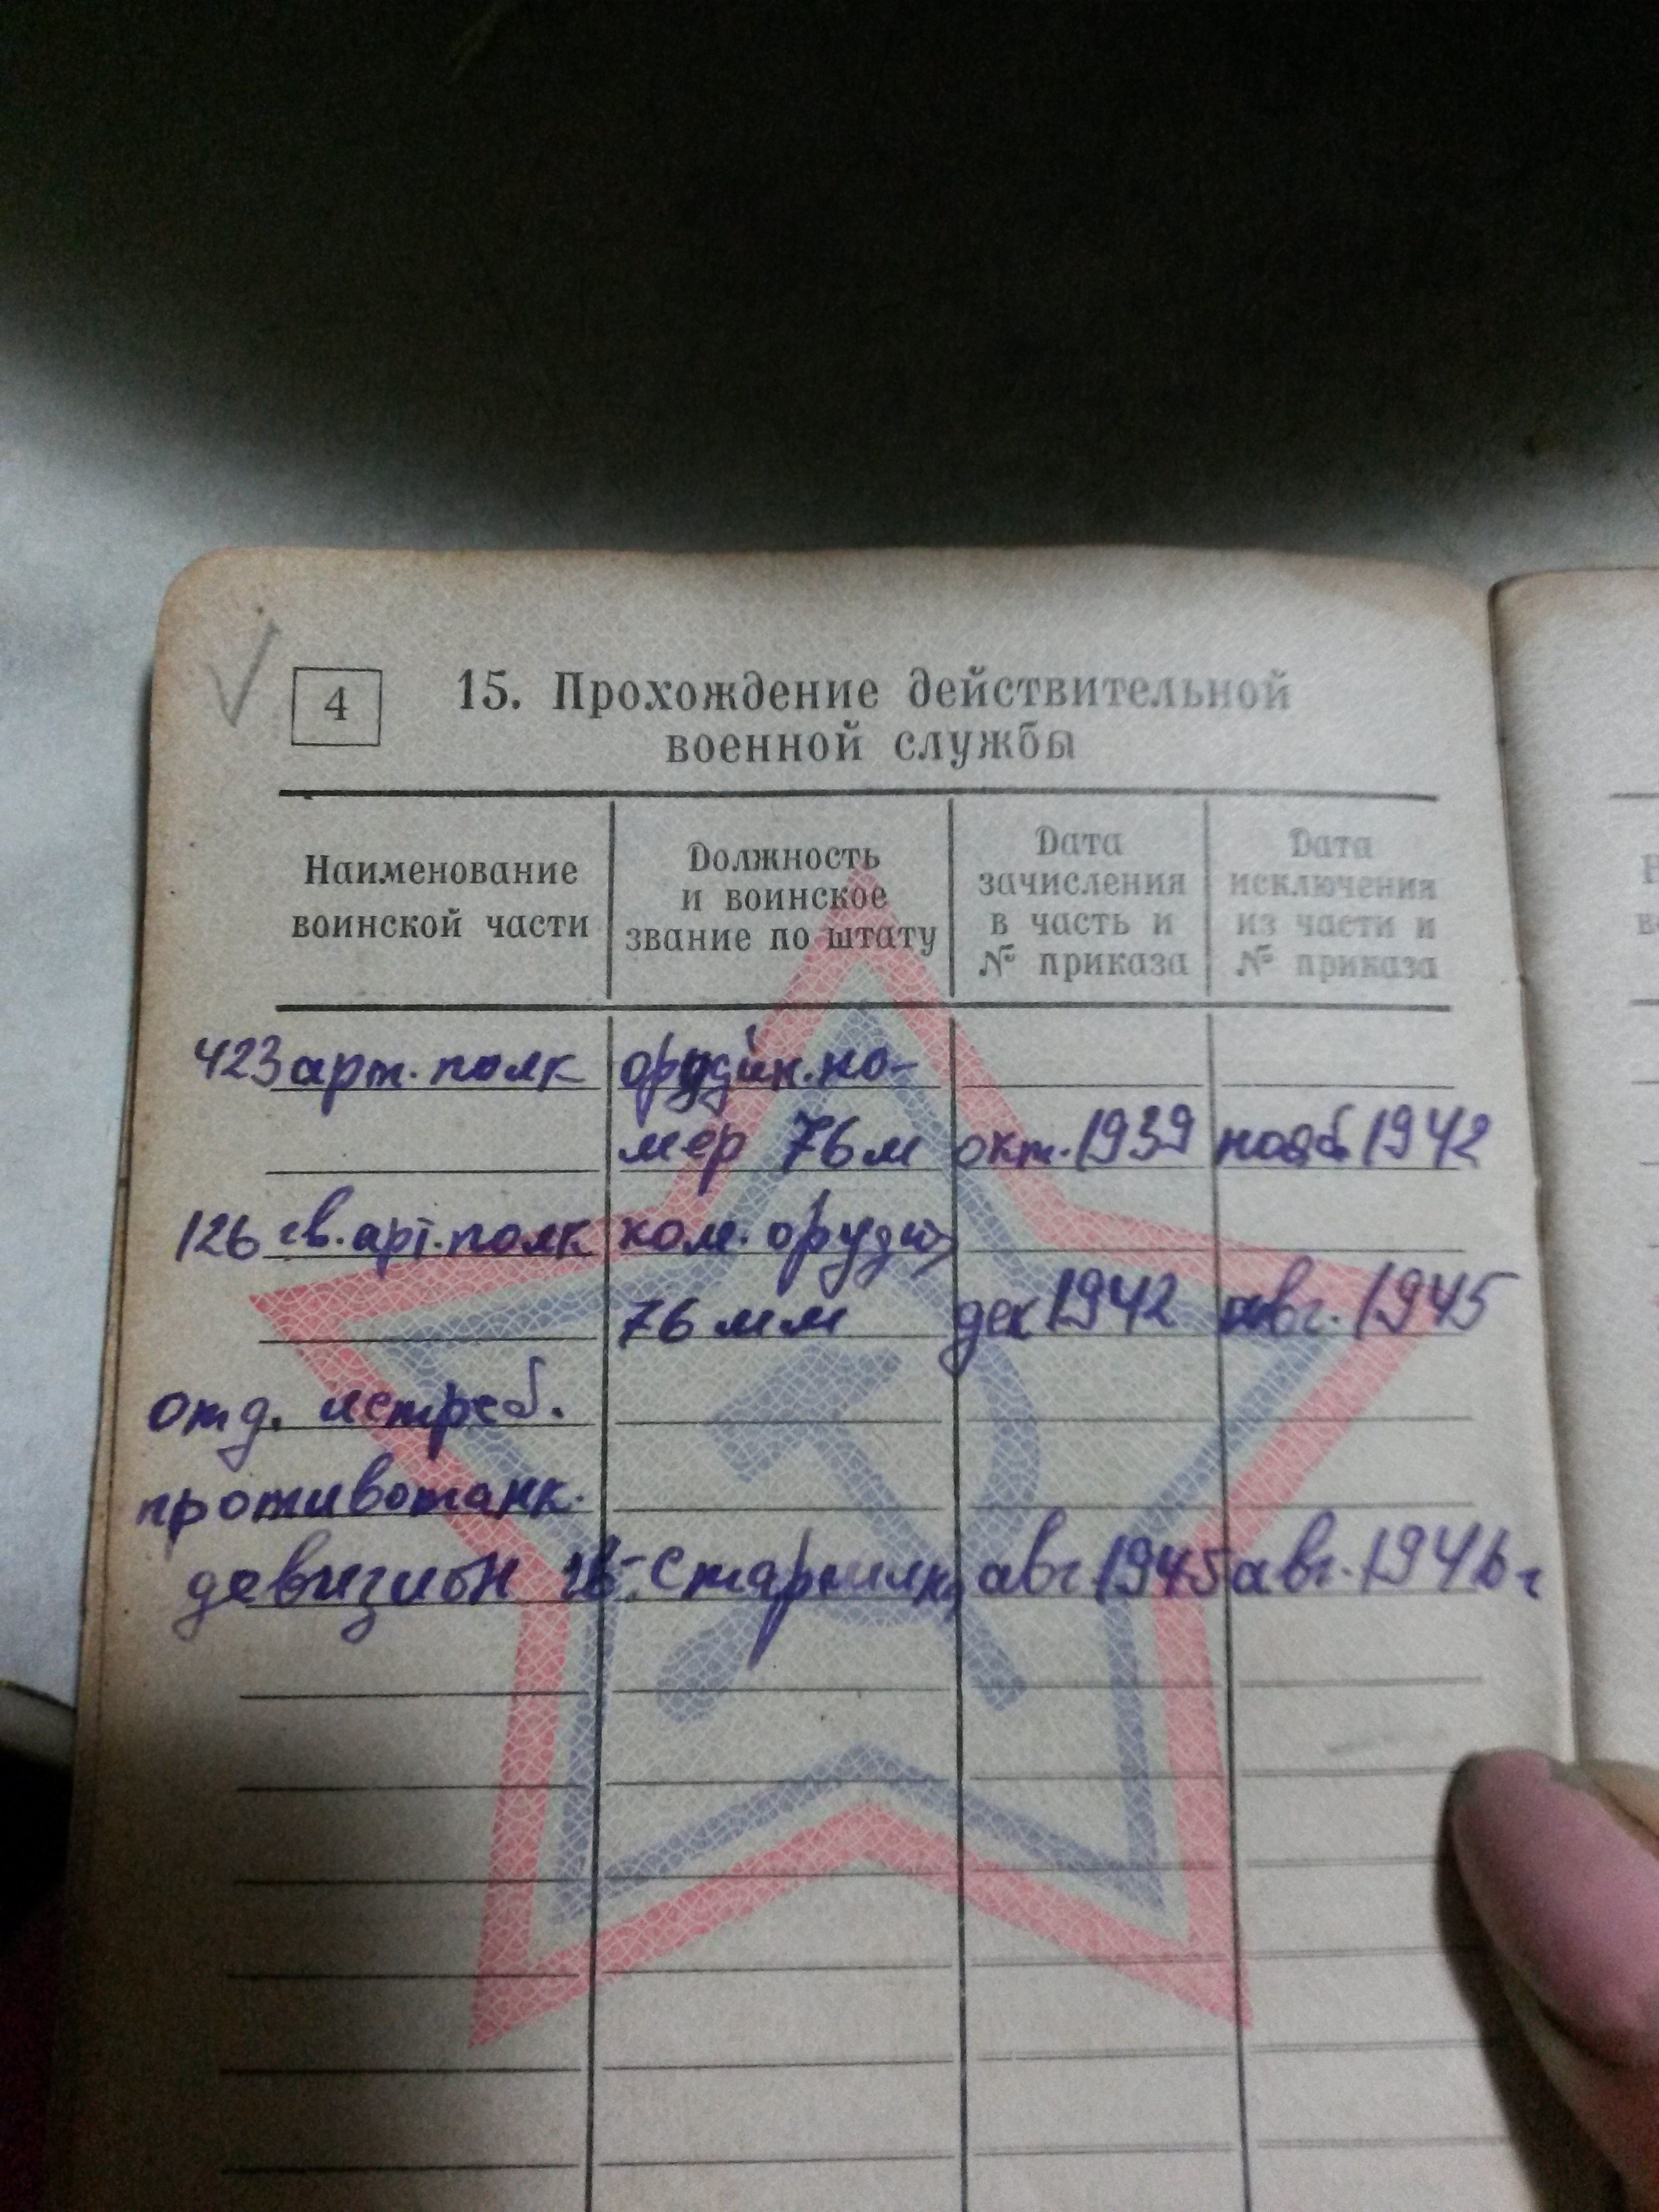 4
15. Прохождение действительной
военной службы
Наименование
воинской части
Должность
и воинское
звание по штату
Дата
зачисления
в часть и
№ приказа
Дата
исключения
из части и
№ приказа
423 арт. полк орудийн. но-
мер 76 м окт. 1939 нояб 1942
126 гв. арт. полк ком. орудия
76 мм дек 1942 авг. 1945
отд. истреб.
противотанк.
дивизион старшина авг 1945 авг. 1946 г